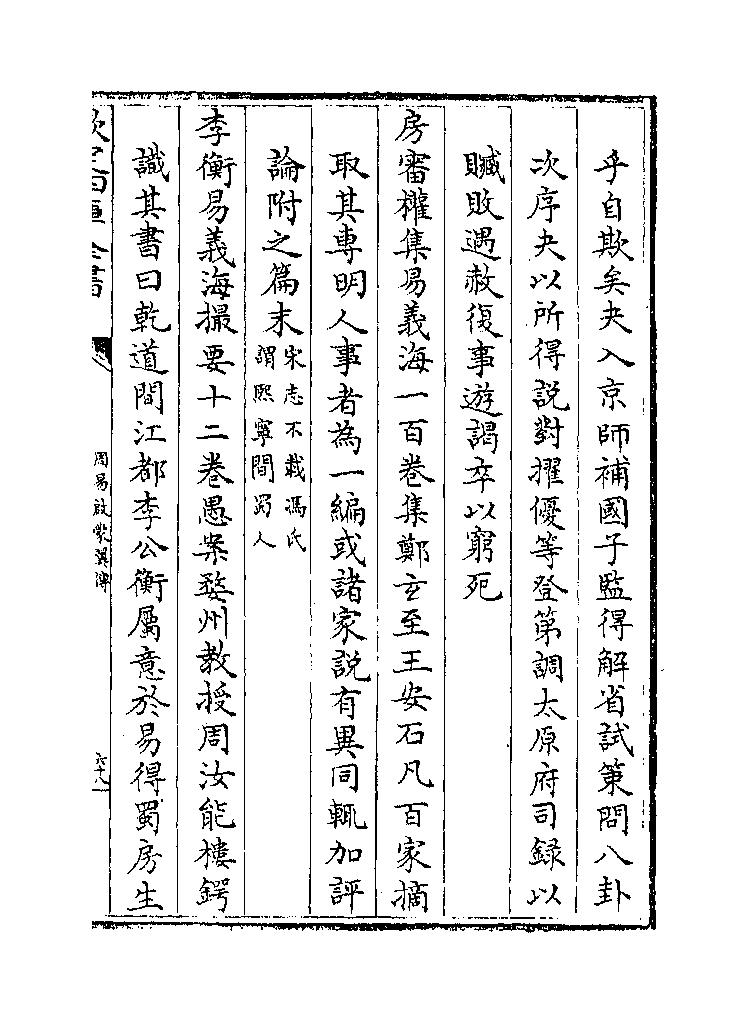 乎自欺矣夬入京師補國子監得解省試策問八卦
次序夬以所得說對擢優等登第調太原府司録以
贓敗遇赦復事遊謁卒以窮死
房審權集易義海一百卷集鄭𤣥至王安石凡百家摘
取其専明人事者為一編或諸家説有異同輒加評
論附之篇末宋志不載馮氏
謂熙寧間蜀人
李衡易義海撮要十二卷愚案婺州教授周汝能樓鍔
識其書曰乾道間江都李公衡屬意於易得蜀房生
欽定四庫全書
周易啟蒙翼傳
六十八